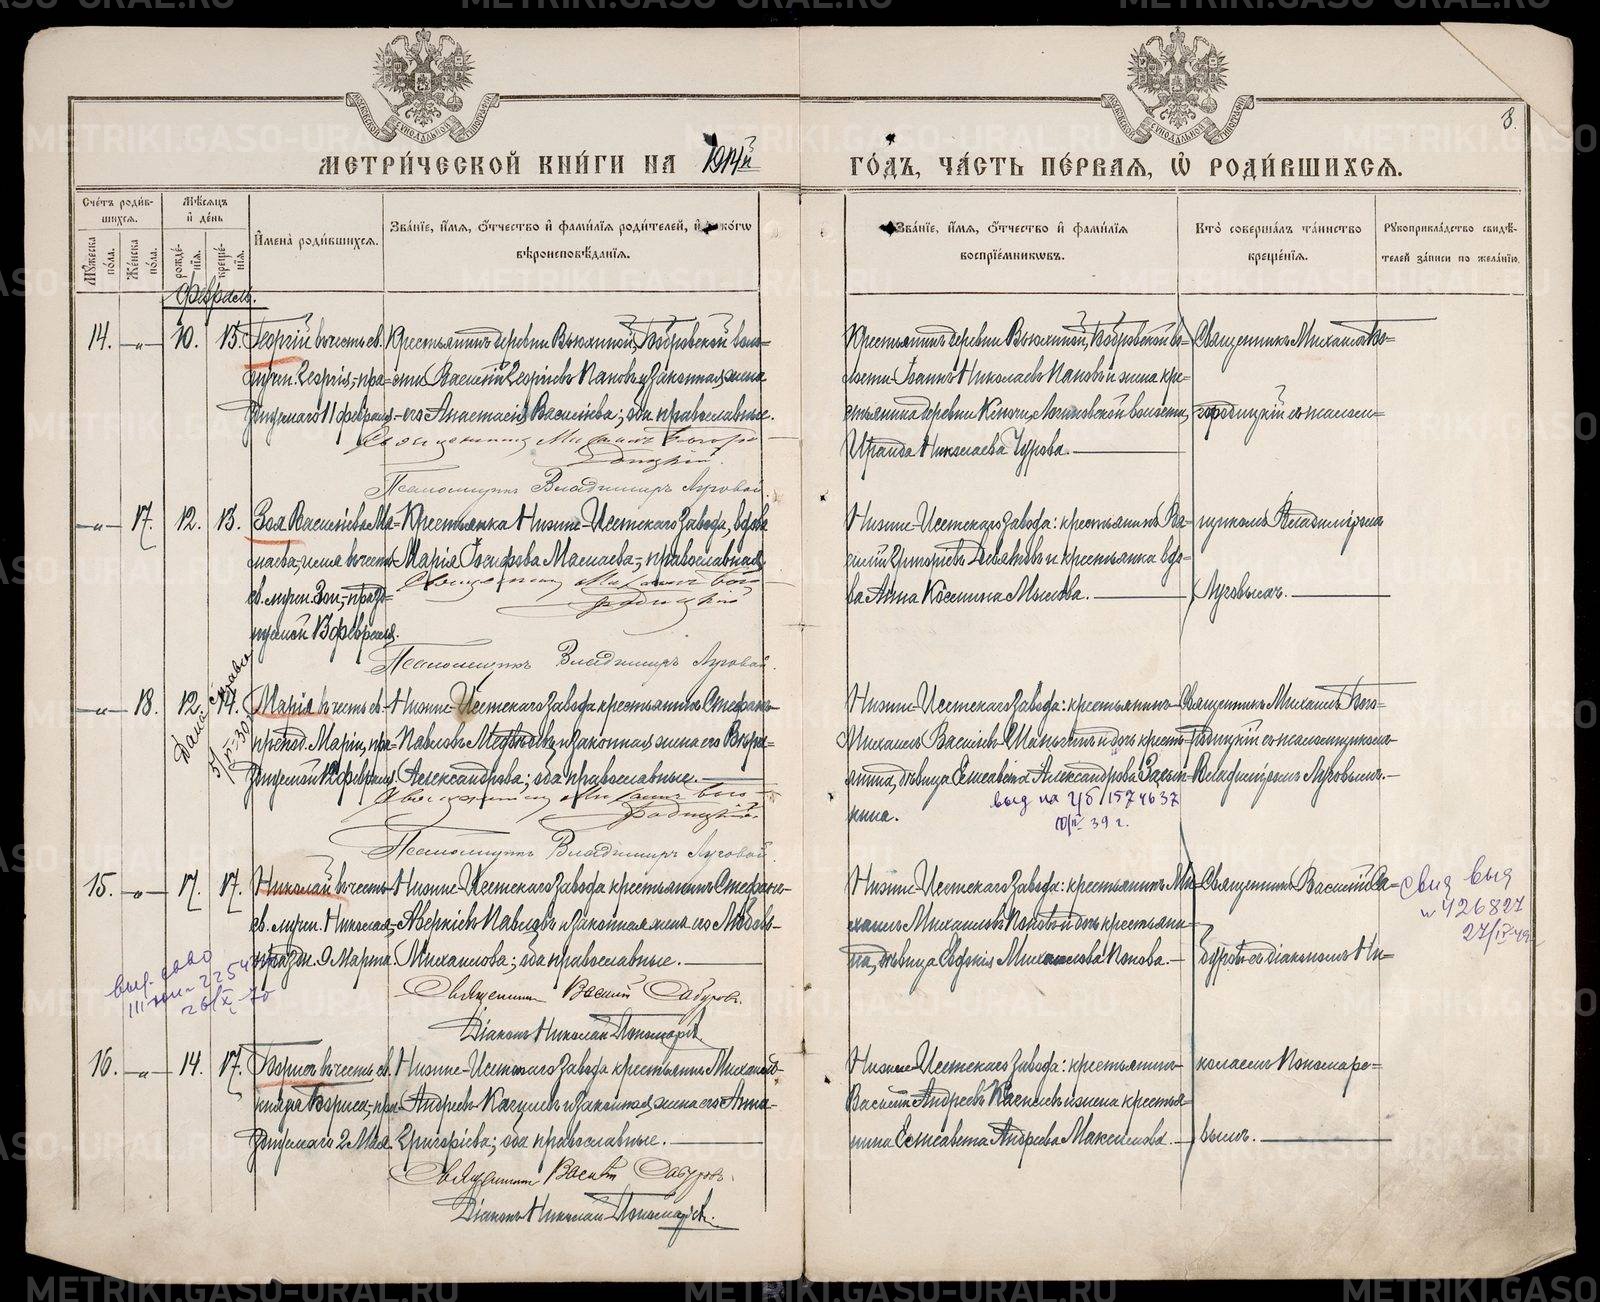 МЕТРИ́ЧЕСКОЙ КНИ́ГИ НА 1914й ГО́ДЪ, ЧА́СТЬ ПЕ́РВАЯ, Ѡ РОДИ́ВШИХСЯ.
8.
Сче́тъ роди́в-
шихся.
Му́жеска
по́ла.
Же́нска
по́ла.
Мѣ́сяцъ
и де́нь
рожде́-
нія.
креще́-
нія.
Имена̀ роди́вшихся.
Зва́ніе, и́мя, о́тчество и фами́лія роди́телей, и како́гѡ
вѣроисповѣ́данія.
Зва́ніе, и́мя, о́тчество и фами́лія
воспріе́мниковъ.
Кто̀ соверша́лъ та́инство
креще́нія.
Рукоприкла́дство свидѣ́-
телей за́писи по жела́нію.
Февраль.
14. —"— 10. 15. Георгій въ честь св.
Крестьянинъ деревни Вьюхиной, Бобровской воло-
сти Василій Георгіевъ Пановъ и законная жена
его Анастасія Васильева; оба православные.
Священникъ Михаилъ Богоро-
дицкій.
Псаломщикъ Владимиръ Луговой.
Крестьянинъ деревни Вьюхиной, Бобровской во-
лости Іоаннъ Николаевъ Пановъ и жена кре-
стьянина деревни Ключи, Логиновской волости,
Ираида Николаева Чурова.
Священникъ Михаилъ Бо-
городицкій съ псалом-
—"— 17. 12. 13. Зоя Васильева Ма-
маева, имя въ честь
св. мучен. Зои, празд-
нуемой 13 февраля.
Крестьянка Нижне-Исетскаго завода, вдова
Марія Іосифова Мамаева, православная.
Священникъ Михаилъ Бого-
родицкій
Псаломщикъ Владимиръ Луговой.
Нижне-Исетскаго завода: крестьянинъ Ва-
силій Григорьевъ Девятовъ и крестьянка вдо-
ва Анна Космина Мыслова.
щикомъ Владиміромъ
Луговымъ.
—"— 18. 12. 14. Марія въ честь св.
препод. Маріи, пра-
зднуемой 12 февраля.
Нижне-Исетскаго завода крестьянинъ Стефанъ
Павловъ и законная жена его Вѣра
Александрова; оба православные.
Священникъ Михаилъ Бого-
родицкій.
Псаломщикъ Владимиръ Луговой.
Нижне-Исетскаго завода: крестьянинъ
Михаилъ Васильевъ и дочь кресть-
янина, дѣвица Елисавета Александрова
кина.
выд на
39 г.
Священникъ Михаилъ Бого-
родицкій съ псаломщикомъ
Владиміромъ Луговымъ.
15. —"— 17. 17. Николай въ честь
св. мучен. Николая,
празд. 9 Марта.
Нижне-Исетскаго завода крестьянинъ Стефанъ
Аверкіевъ Павловъ и законная жена его Любовь
Михаилова; оба православные.
Священникъ Василій Сабуровъ.
Діаконъ Николай Пономаревъ.
Нижне-Исетскаго завода: крестьянинъ Ми-
хаилъ Михаиловъ Поповъ и дочь крестьяни-
на, дѣвица Евдокія Михаилова Попова.
Священникъ Василій Са-
буровъ съ діакономъ Ни-
свид выд
№ 426827
16. —"— 14. 17. Борисъ въ честь св.
князя Бориса, пра-
зднуемаго 2 Мая.
Нижне-Исетскаго завода крестьянинъ Михаилъ
Андреевъ и законная жена его Анна
Григорьева; оба православные.
Священникъ Василій Сабуровъ.
Діаконъ Николай Пономаревъ.
Нижне-Исетскаго завода: крестьянинъ
Василій Андреевъ и жена крестья-
нина Елисавета Андреева Максимова.
колаемъ Пономаре-
вымъ.
METRIKI.GASO-URAL.RU